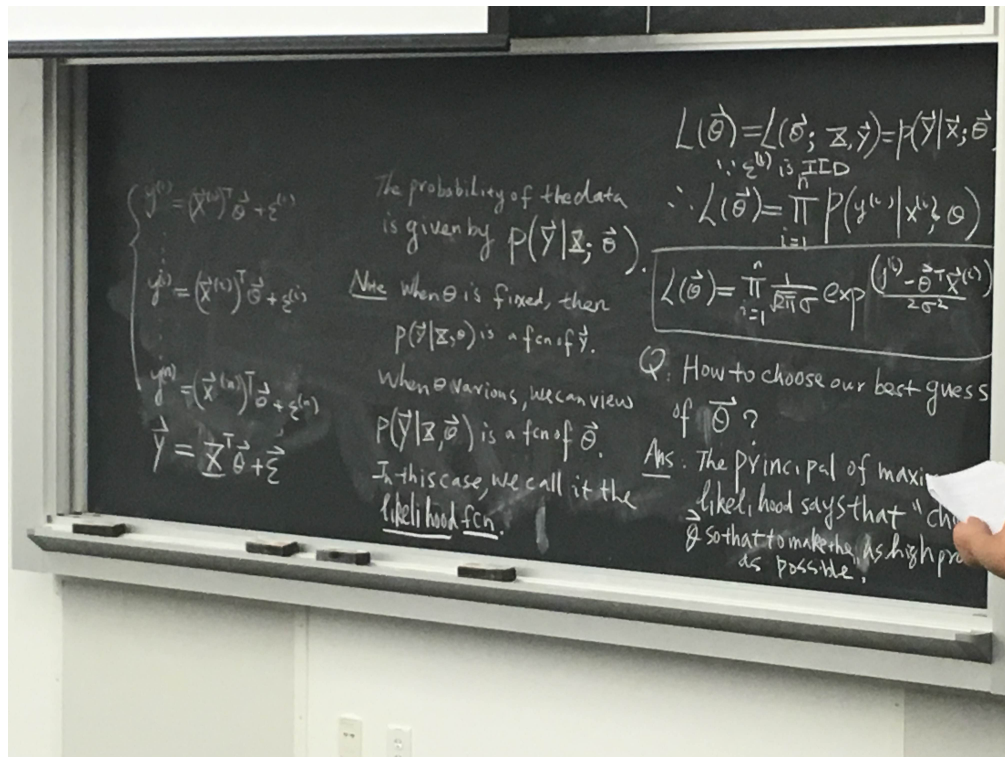 y⁽¹⁾ = (x⃗⁽¹⁾)ᵀ θ⃗ + ε⁽¹⁾
⋮
y⁽ⁱ⁾ = (x⃗⁽ⁱ⁾)ᵀ θ⃗ + ε⁽ⁱ⁾
⋮
y⁽ⁿ⁾ = (x⃗⁽ⁿ⁾)ᵀ θ⃗ + ε⁽ⁿ⁾
y⃗ = X̲ᵀ θ⃗ + ε⃗
The probability of the data
is given by P(y⃗ | X; θ⃗).
Note When θ is fixed, then
p(y⃗ | X; θ) is a fcn of y⃗.
When θ varions, we can view
P(y⃗ | X, θ⃗) is a fcn of θ⃗.
In this case, we call it the
likelihood fcn.
L(θ⃗) = L(θ⃗; X, y⃗) = p(y⃗ | x⃗; θ⃗
∵ ε⁽ⁱ⁾ is IID
∴ L(θ⃗) = ∏ᵢ₌₁ⁿ P(y⁽ⁱ⁾ | x⁽ⁱ⁾; θ)
L(θ⃗) = ∏ᵢ₌₁ⁿ 1/(√2π σ) exp (y⁽ⁱ⁾ - θ⃗ᵀ x⃗⁽ⁱ⁾)/2σ²
Q: How to choose our best guess
of θ⃗?
Ans: The principal of maxi
likelihood says that "ch
θ⃗ so that to make the as high pro
as possible.